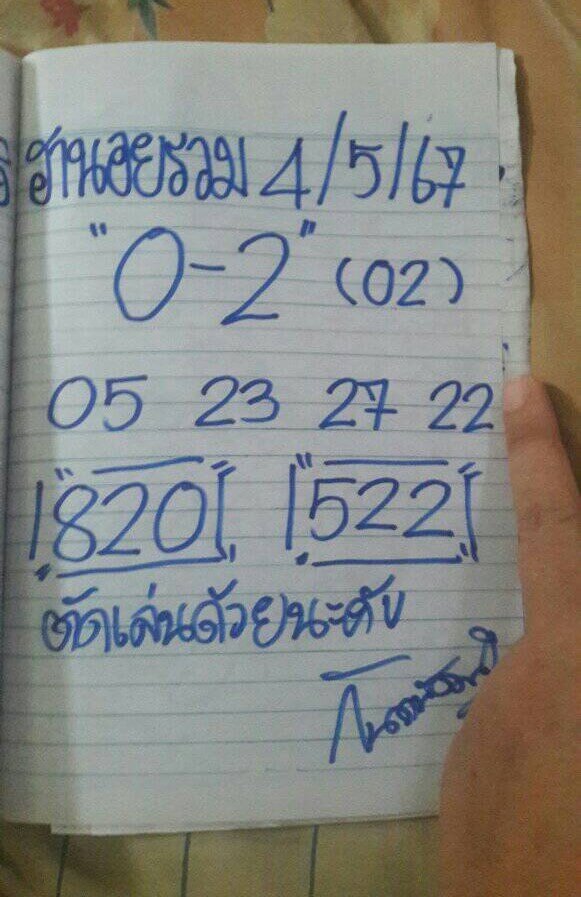 ฮานอยรวม 4/5/67
"0-2" (02)
05 23 27 22
"820" "522"
ตัดเล่นด้วยนะคับ